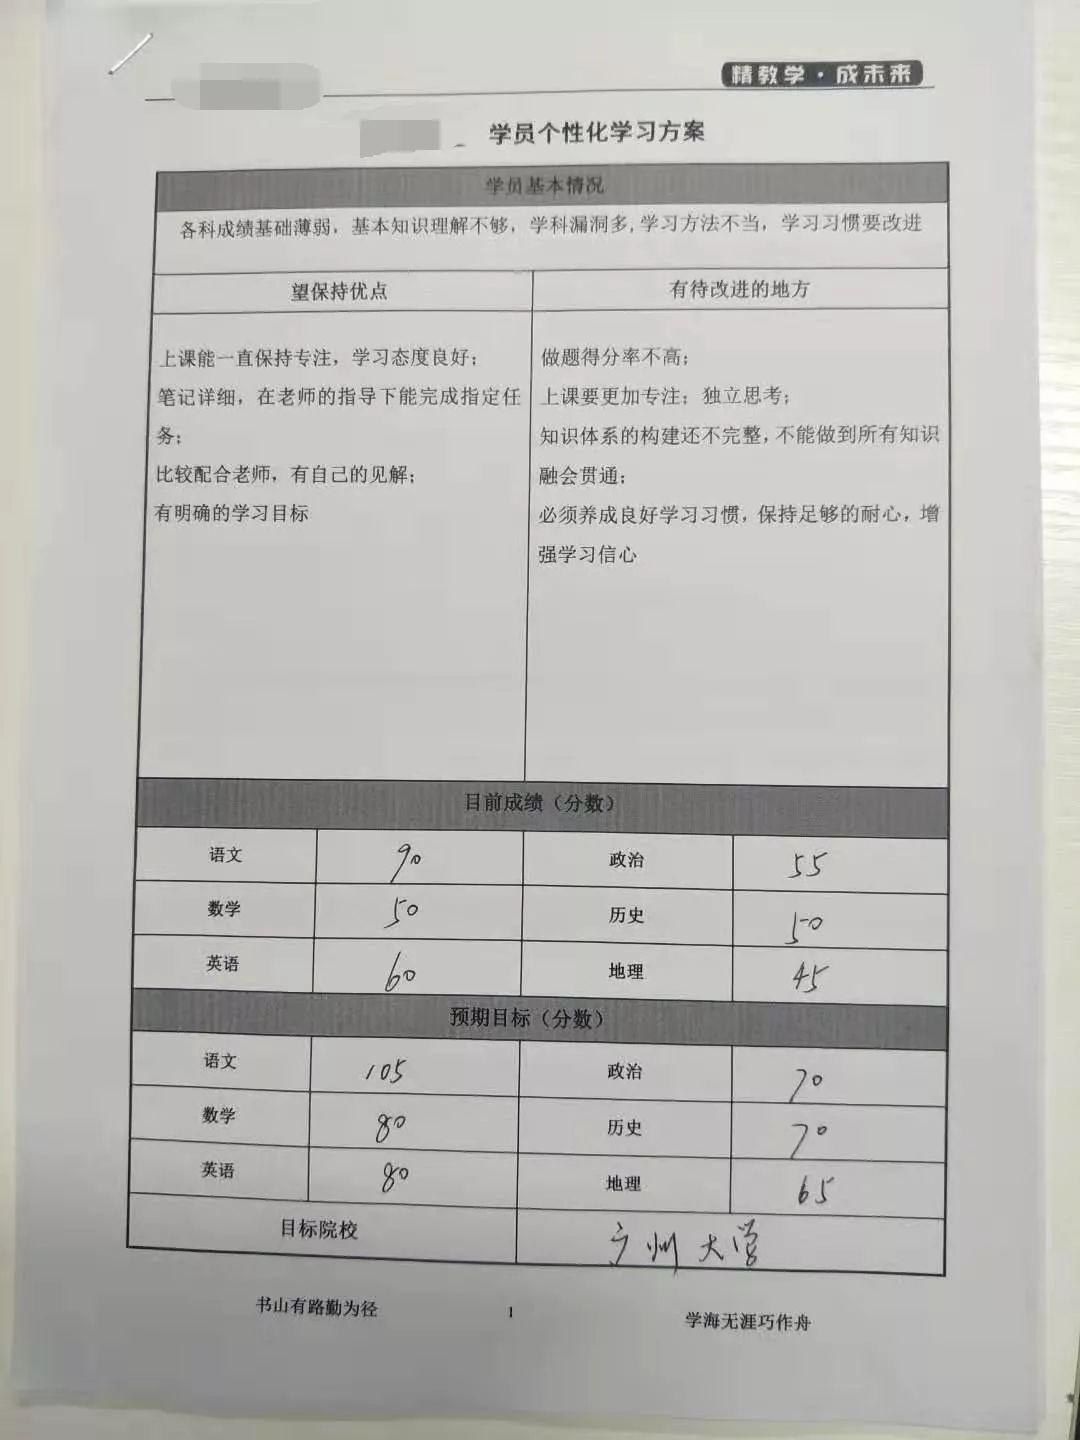 精教学·成未来
学员个性化学习方案
学员基本情况
各科成绩基础薄弱，基本知识理解不够，学科漏洞多,学习方法不当，学习习惯要改进
望保持优点
有待改进的地方
上课能一直保持专注，学习态度良好；
笔记详细，在老师的指导下能完成指定任
务；
比较配合老师，有自己的见解；
有明确的学习目标
做题得分率不高；
上课要更加专注；独立思考；
知识体系的构建还不完整，不能做到所有知识
融会贯通；
必须养成良好学习习惯，保持足够的耐心，增
强学习信心
目前成绩（分数）
语文 90 政治 55
数学 50 历史 50
英语 60 地理 45
预期目标（分数）
语文 105 政治 70
数学 80 历史 70
英语 80 地理 65
目标院校 广州大学
书山有路勤为径 1 学海无涯巧作舟